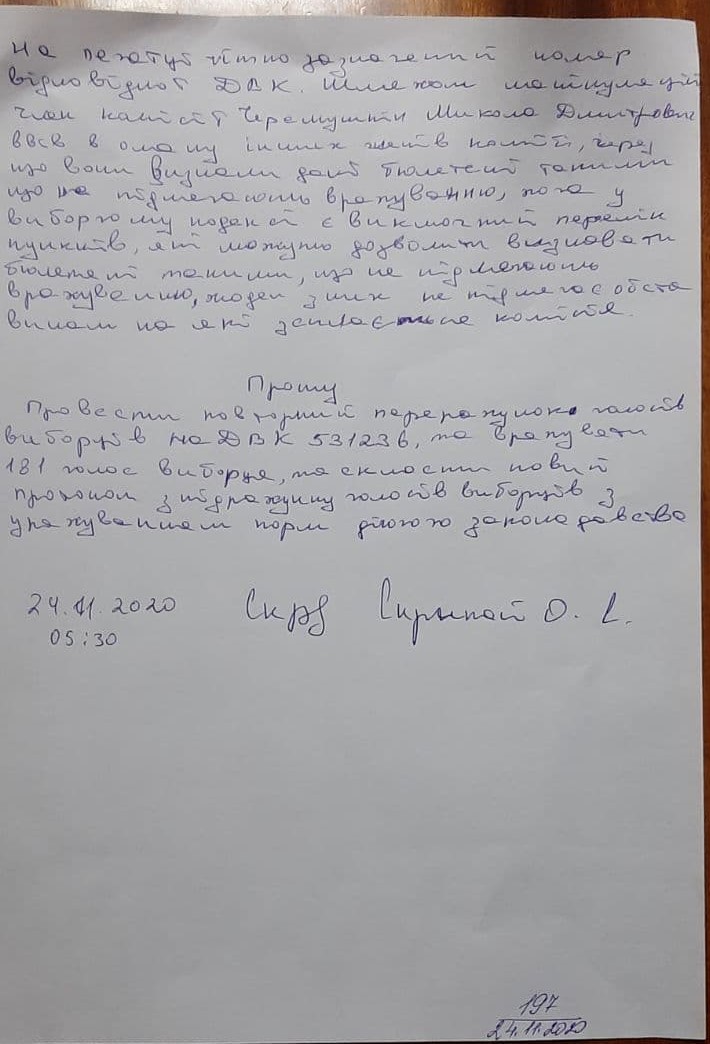 На печатці чітно зазначений номер
відповідної ДВК. Шляхом маніпуляцій
член комісії Черемушкін Микола Дмитрович
ввів в оману інших членів комісії, через
що вони визнали дані бюлетені такими
що не підлягають врахуванню, хоча у
виборчому кодексі є виключний перелік
пунктів, які можуть дозволити визнавати
бюлетені такими, що не підлягають
врахуванню, жоден з них не підлягає обста
винам на які комісія.
Прошу
Провести повторний перерахунок голосів
виборців на ДВК 531236, та врахувати
181 голос виборця, та скласти новий
протокол з підрахунку голосів виборців з
урахуванням норм діючого законодавства
24.11.2020
05:30
О.
197
24.11.2020